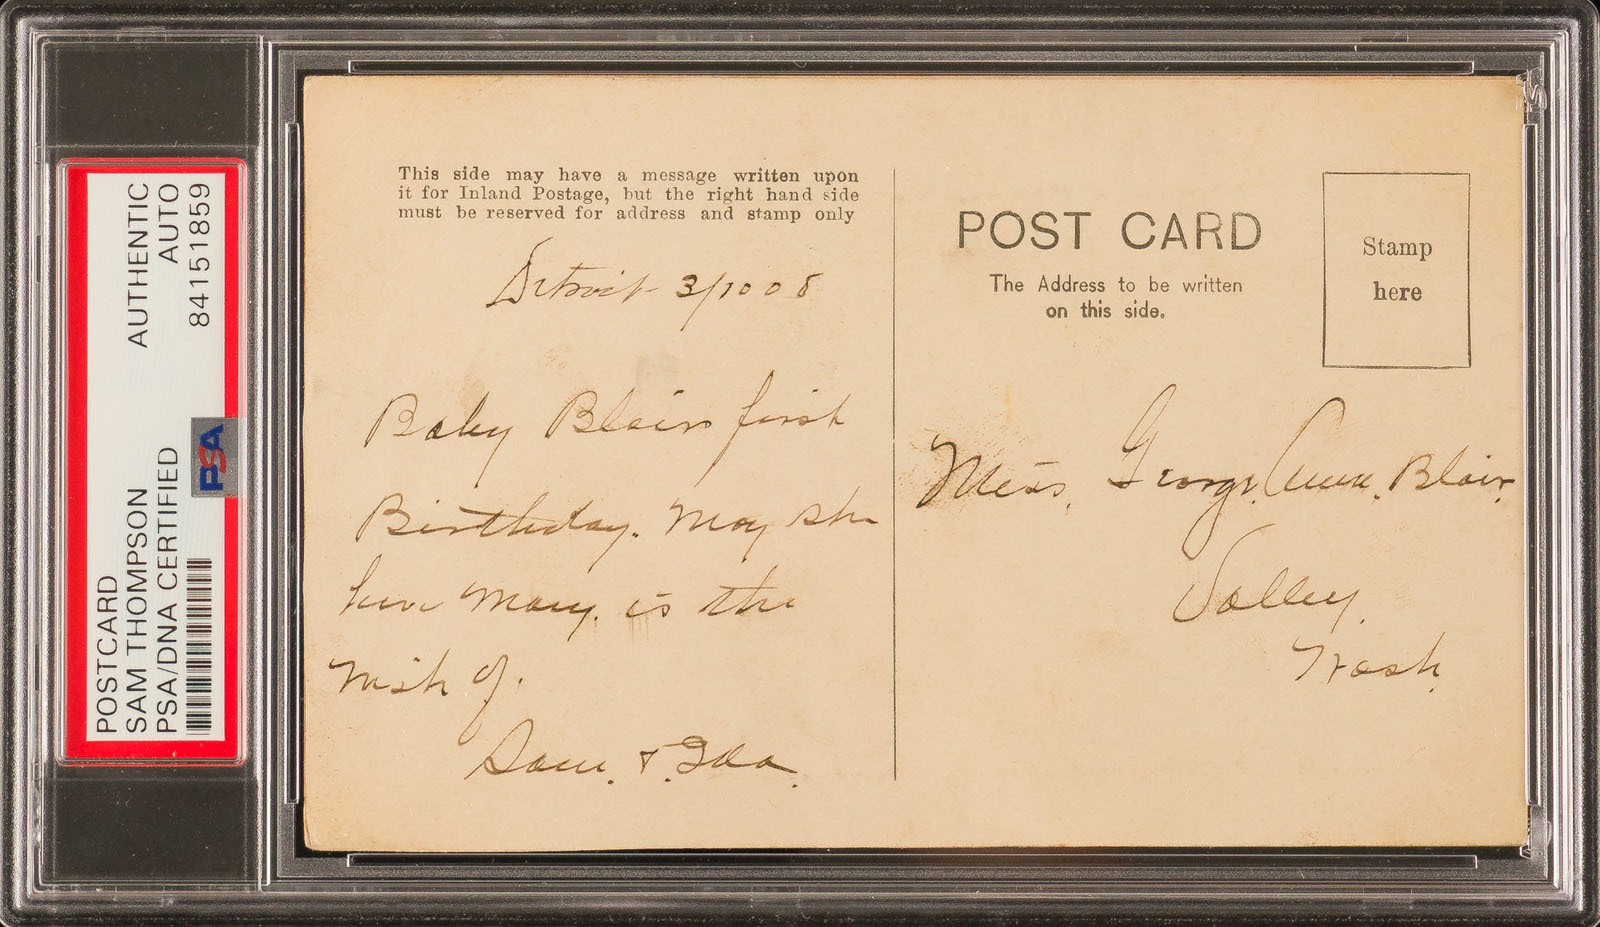 POSTCARD
SAM THOMPSON
PSA/DNA CERTIFIED
AUTHENTIC
AUTO
84151859
PSA
This side may have a message written upon
it for Inland Postage, but the right hand side
must be reserved for address and stamp only
Detroit 3/10 08
Baby Blairs first
Birthday. May she
have Many. is the
Wish of.
Sam. & Ida.
POST CARD
The Address to be written
on this side.
Stamp
here
Miss. George Anna. Blair.
Valley.
Wash.